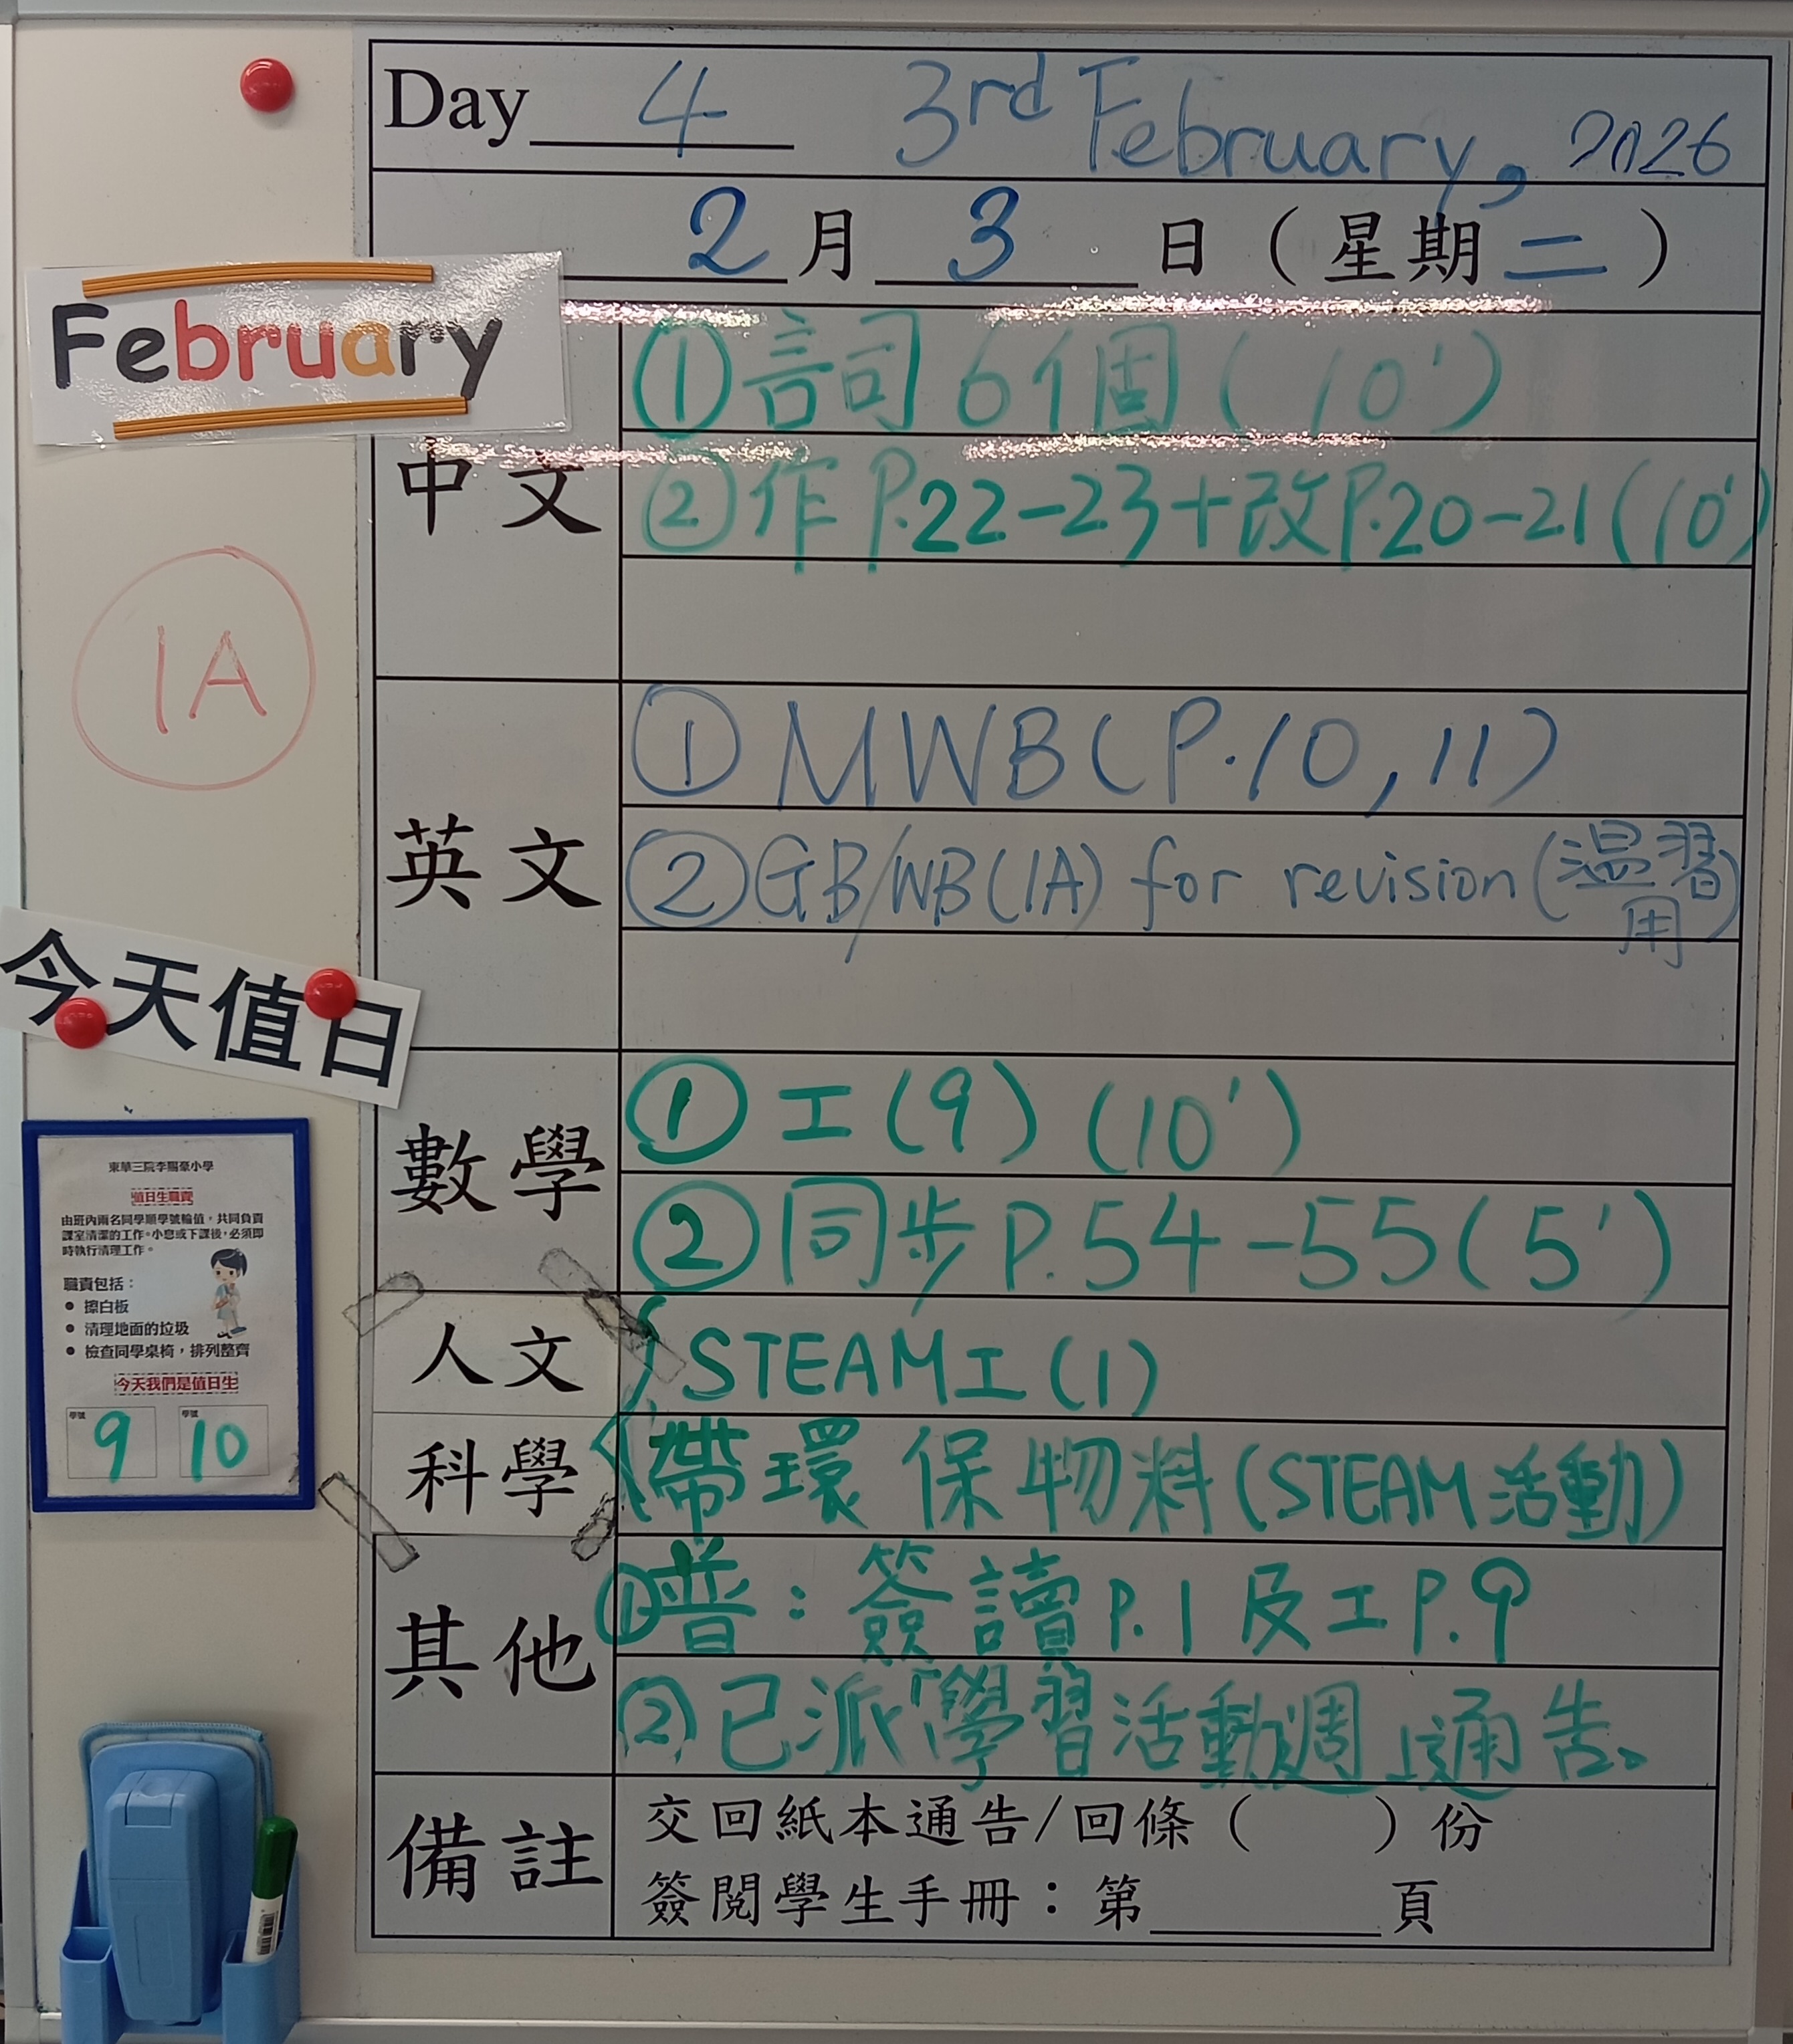 Day 4 3rd February, 2026
2月3日（星期二）
February
中文
①詞6個(10')
②作P.22-23+改P.20-21(10')
1A
英文
①MWB(P.10,11)
②GB/WB(1A) for revision(溫習用)
今天值日
數學
①工(9) (10')
②同步P.54-55(5')
人文
STEAM工(1)
科學
帶環保物料(STEAM活動)
其他
①普：簽讀P.1及工P.9
②已派「學習活動週」通告。
備註
交回紙本通告/回條（ ）份
簽閱學生手冊：第 頁
東華三院李賜豪小學
值日生職責
由班內兩名同學順學號輪值，共同負責
課室清潔的工作。小息或下課後，必須即
時執行清理工作。
職責包括：
• 擦白板
• 清理地面的垃圾
• 檢查同學桌椅，排列整齊
今天我們是值日生
學號 學號
9 10